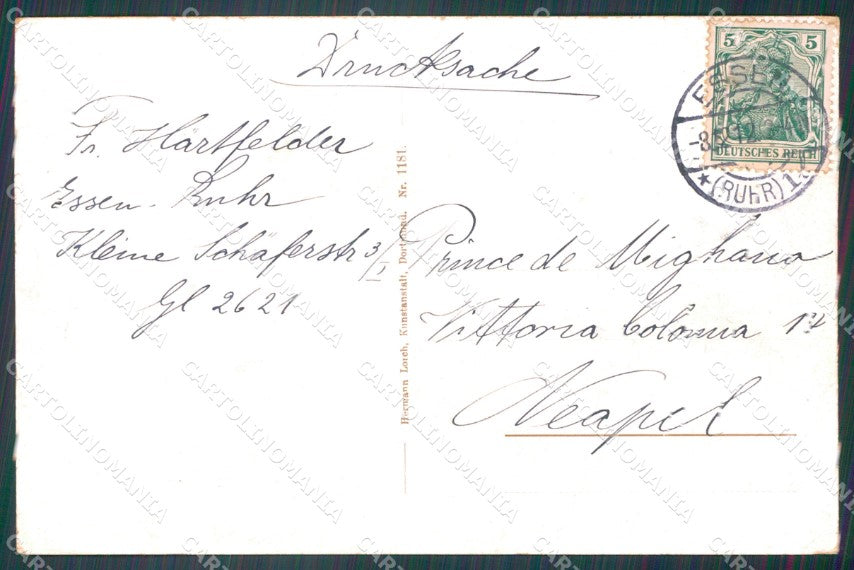 Drucksache
5 5
DEUTSCHES REICH
ESSEN
-8.5.
★(RUHR)1
Fr. Hartfelder
Essen-Ruhr
Kleine Schäferstr 3/I
Gl 2621
Hermann Lorch, Kunstanstalt, Dortmund. Nr. 1181.
Prince de Mighano
Vittoria Colonna
Neapel
CARTOLINOMANIA